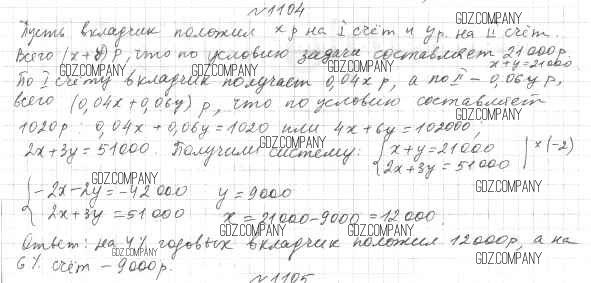 №1104
Пусть вкладчик положил x р на I счёт и y р. на II счёт.
GDZ.COMPANY
Всего (x+y) р, что по условию задачи составляет 21000р.
x+y=21000
GDZ.COMPANY GDZ.COMPANY GDZ.COMPANY
По I счёту вкладчик получает 0,04x р, а по II – 0,06y р,
всего (0,04x+0,06y) р, что по условию составляет
GDZ.COMPANY
1020р: 0,04x+0,06y=1020 или 4x+6y=102000,
GDZ.COMPANY GDZ.COMPANY
2x+3y=51000. Получили систему: { x+y=21000 | x(-2)
2x+3y=51000
GDZ.COMPANY GDZ.COMPANY
{ -2x-2y=-42000 y=9000
2x+3y=51000 x=21000-9000=12000.
GDZ.COMPANY GDZ.COMPANY
Ответ: на 4% годовых вкладчик положил 12000р, а на
GDZ.COMPANY GDZ.COMPANY
6% счёт – 9000р.
№1105